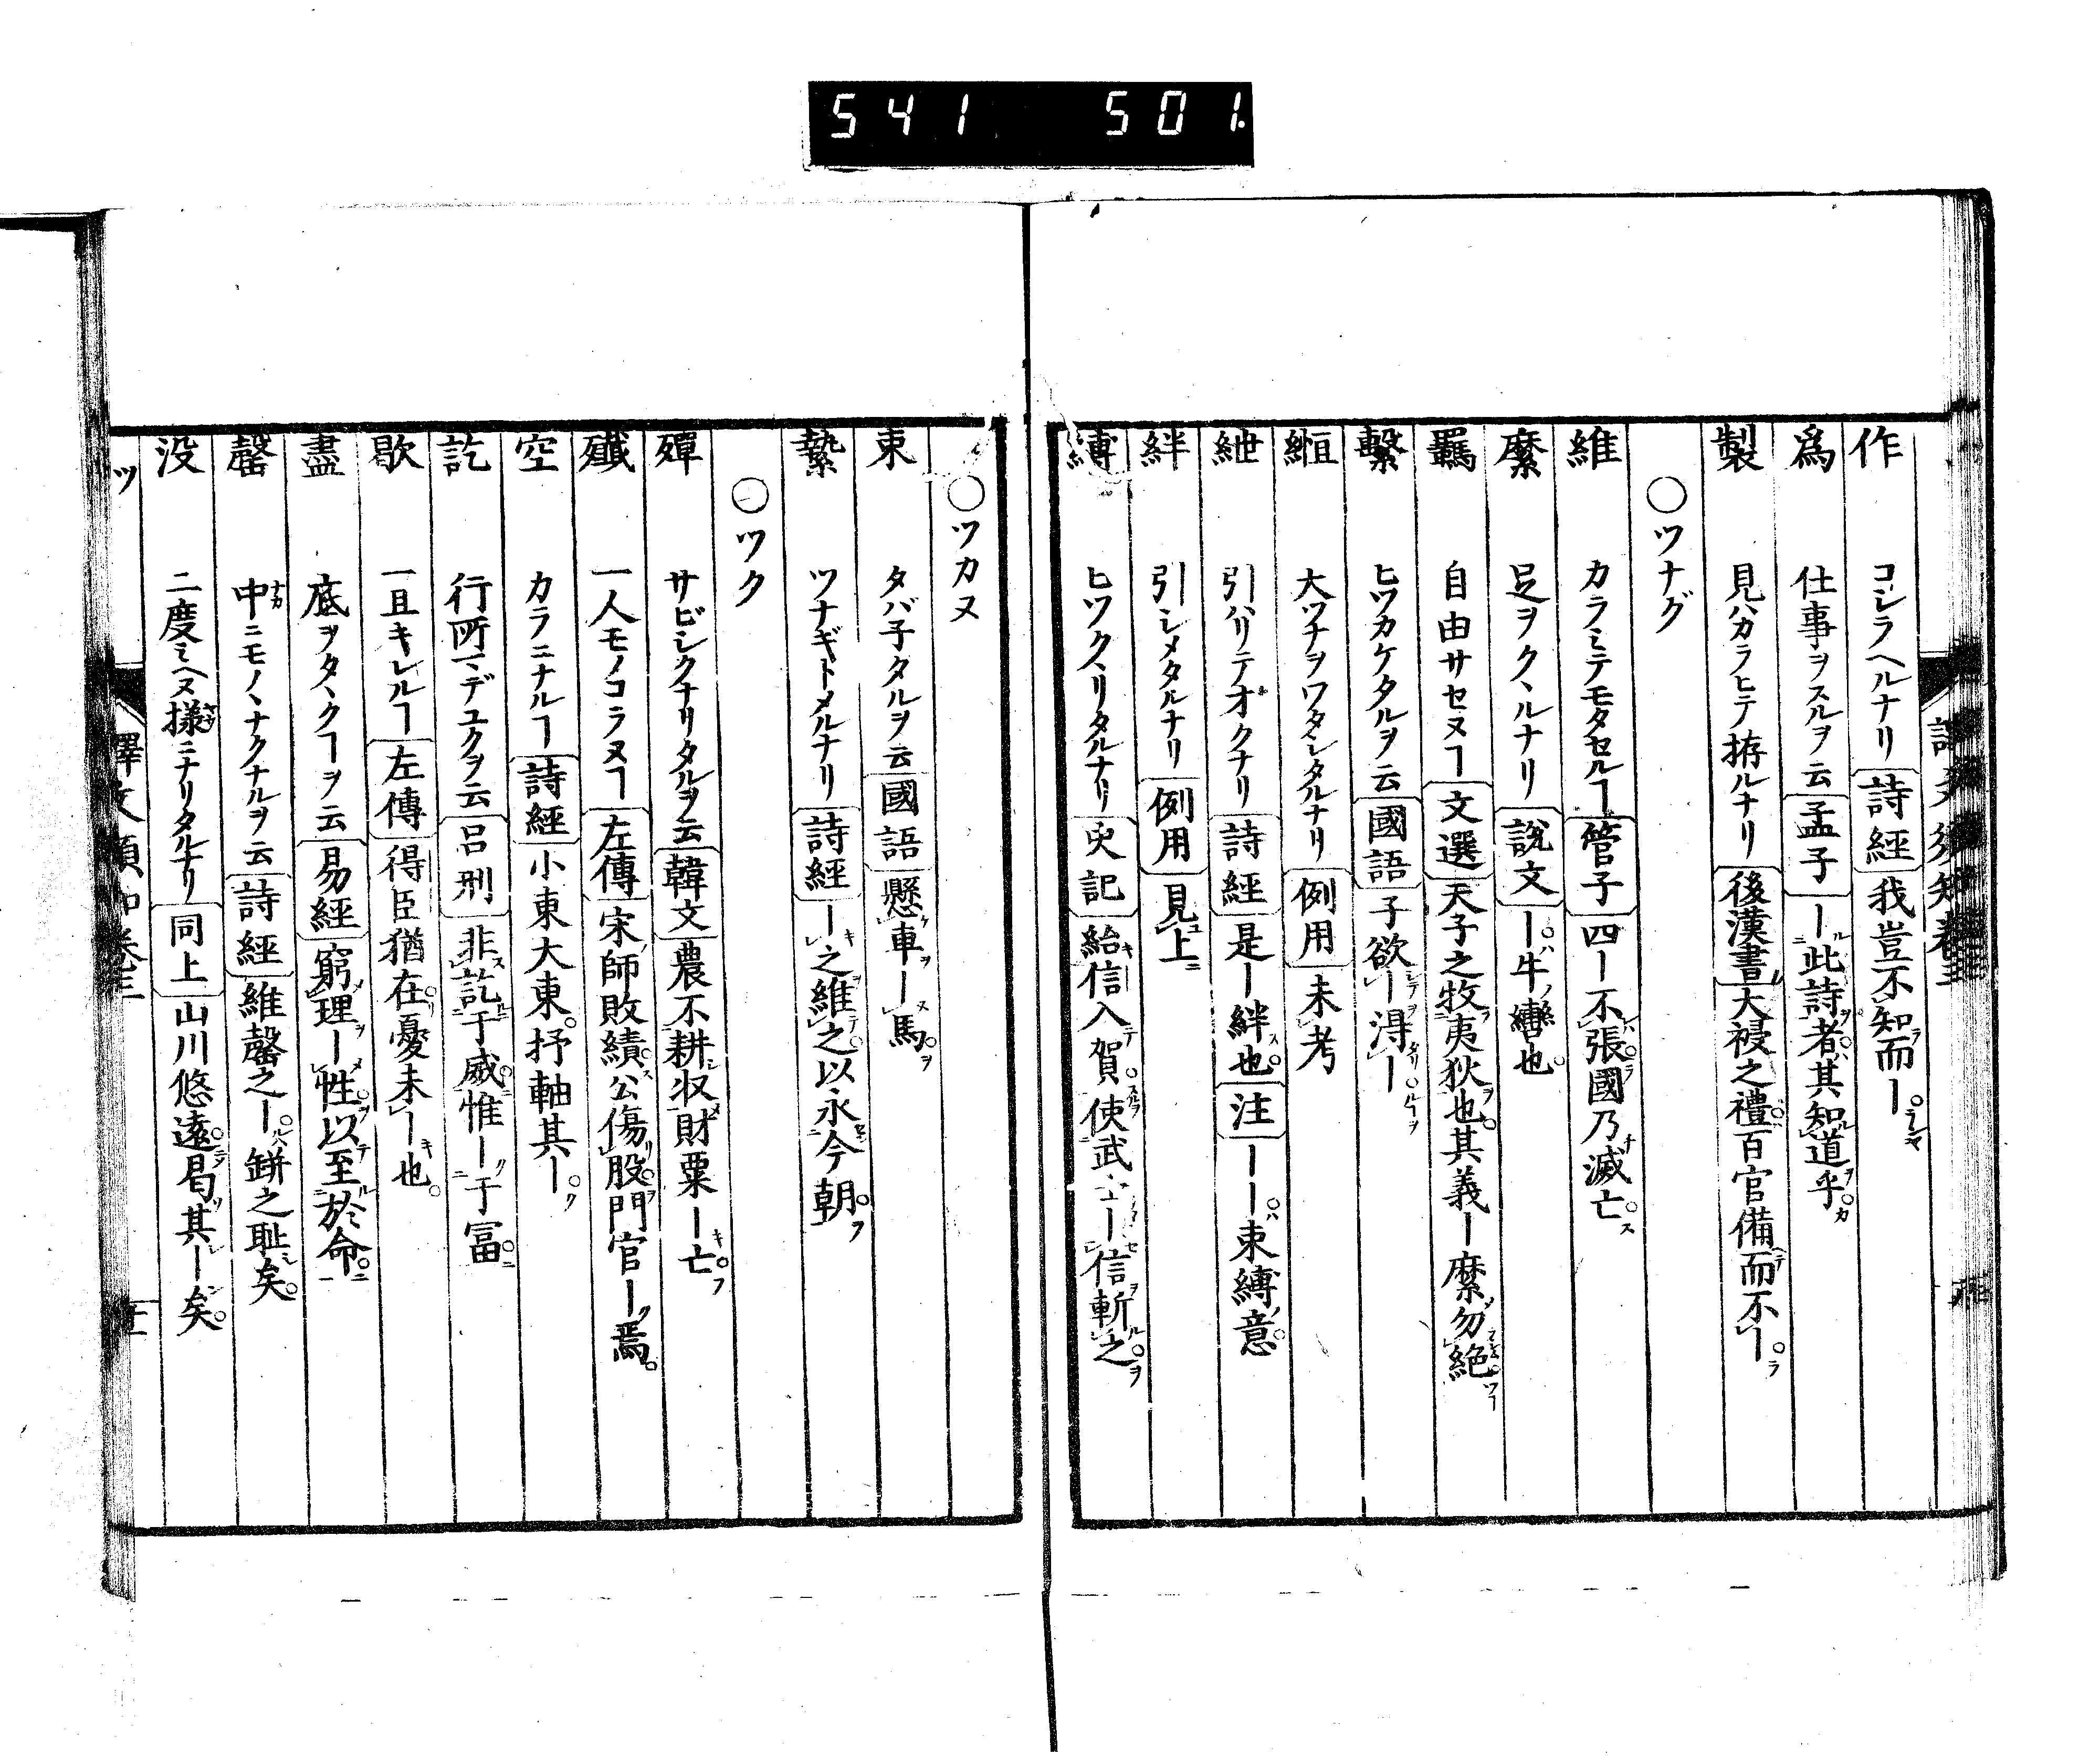 541 501.
作 コシラヘルナリ 詩經 我豈不知而ー
爲 仕事ヲスルヲ云 孟子 ー此詩者其知道乎
製 見ハカラヒテ拵ルナリ 後漢書 大祲之禮百官備而不ー
○ツナグ
維 カラミテモタセルヿ 管子 四ー不張國乃滅亡
縻 足ヲクヽルナリ 說文 ー牛轡也
羈 自由サセヌヿ 文選 天子之牧夷狄也其義ー縻勿絶
繫 ヒツカケタルヲ云 國語 子欲ー淂ー
緪 大ツナヲワタシタルナリ 例用 未考
紲 引ハリテオクナリ 詩經 是ー絆也 注 ーー束縛意
絆 引シメタルナリ 例用 見上
縛 ヒツクヽリタルナリ 史記 給信入賀使武士ー信斬之
○ツカヌ
束 タバ子タルヲ云 國語 懸車ー馬
縶 ツナギトメルナリ 詩經 ー之維之以永今朝
○ツク
殫 サビシクナリタルヲ云 韓文 農不耕収財粟ー亡
殲 一人モノコラヌヿ 左傳 宋師敗績公傷股門官ー焉
空 カラニナルヿ 詩經 小東大東抒軸其ー
訖 行所マデユクヲ云 呂刑 非訖于威惟ー于冨
歇 一旦キレルヿ 左傳 得臣猶在憂未ー也
盡 底ヲタヽクヿヲ云 易經 窮理ー性以至於命
罄 中ニモノヽナクナルヲ云 詩經 維罄之ー缾之耻矣
没 二度ミヘヌ様ニナリタルナリ 同上 山川悠遠曷其ー矣
ツ
譯文須知卷三